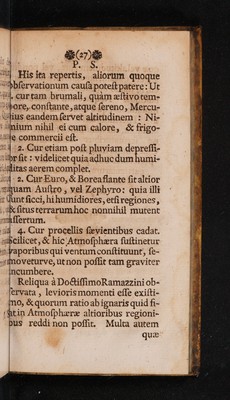 (27)
P. S.
His ita repertis, aliorum quoque
observationum causa potest patere: Ut
1. cur tam brumali, quàm æstivo tem-
pore, constante, atque sereno, Mercu-
rius eandem servet altitudinem: Ni-
mium nihil ei cum calore, & frigo-
re commercii est.
2. Cur etiam post pluviam depressi-
or sit: videlicet quia adhuc dum humi-
ditas aerem complet.
2. Cur Euro, & Borea flante sit altior
quam Austro, vel Zephyro: quia illi
sunt sicci, hi humidiores, etsi regiones,
& situs terrarum hoc nonnihil mutent
assertum.
4. Cur procellis sævientibus cadat.
Scilicet, & hic Atmosphæra sustinetur
vaporibus qui ventum constituunt, se-
mo vetur ve, ut non possit tam graviter
incumbere.
Reliqua à Doctissimo Ramazzini ob-
servata, levioris momenti esse existi-
mo, & quorum ratio ab ignaris quid fi-
at in Atmosphæræ altioribus regioni-
bus reddi non possit. Multa autem
quæ